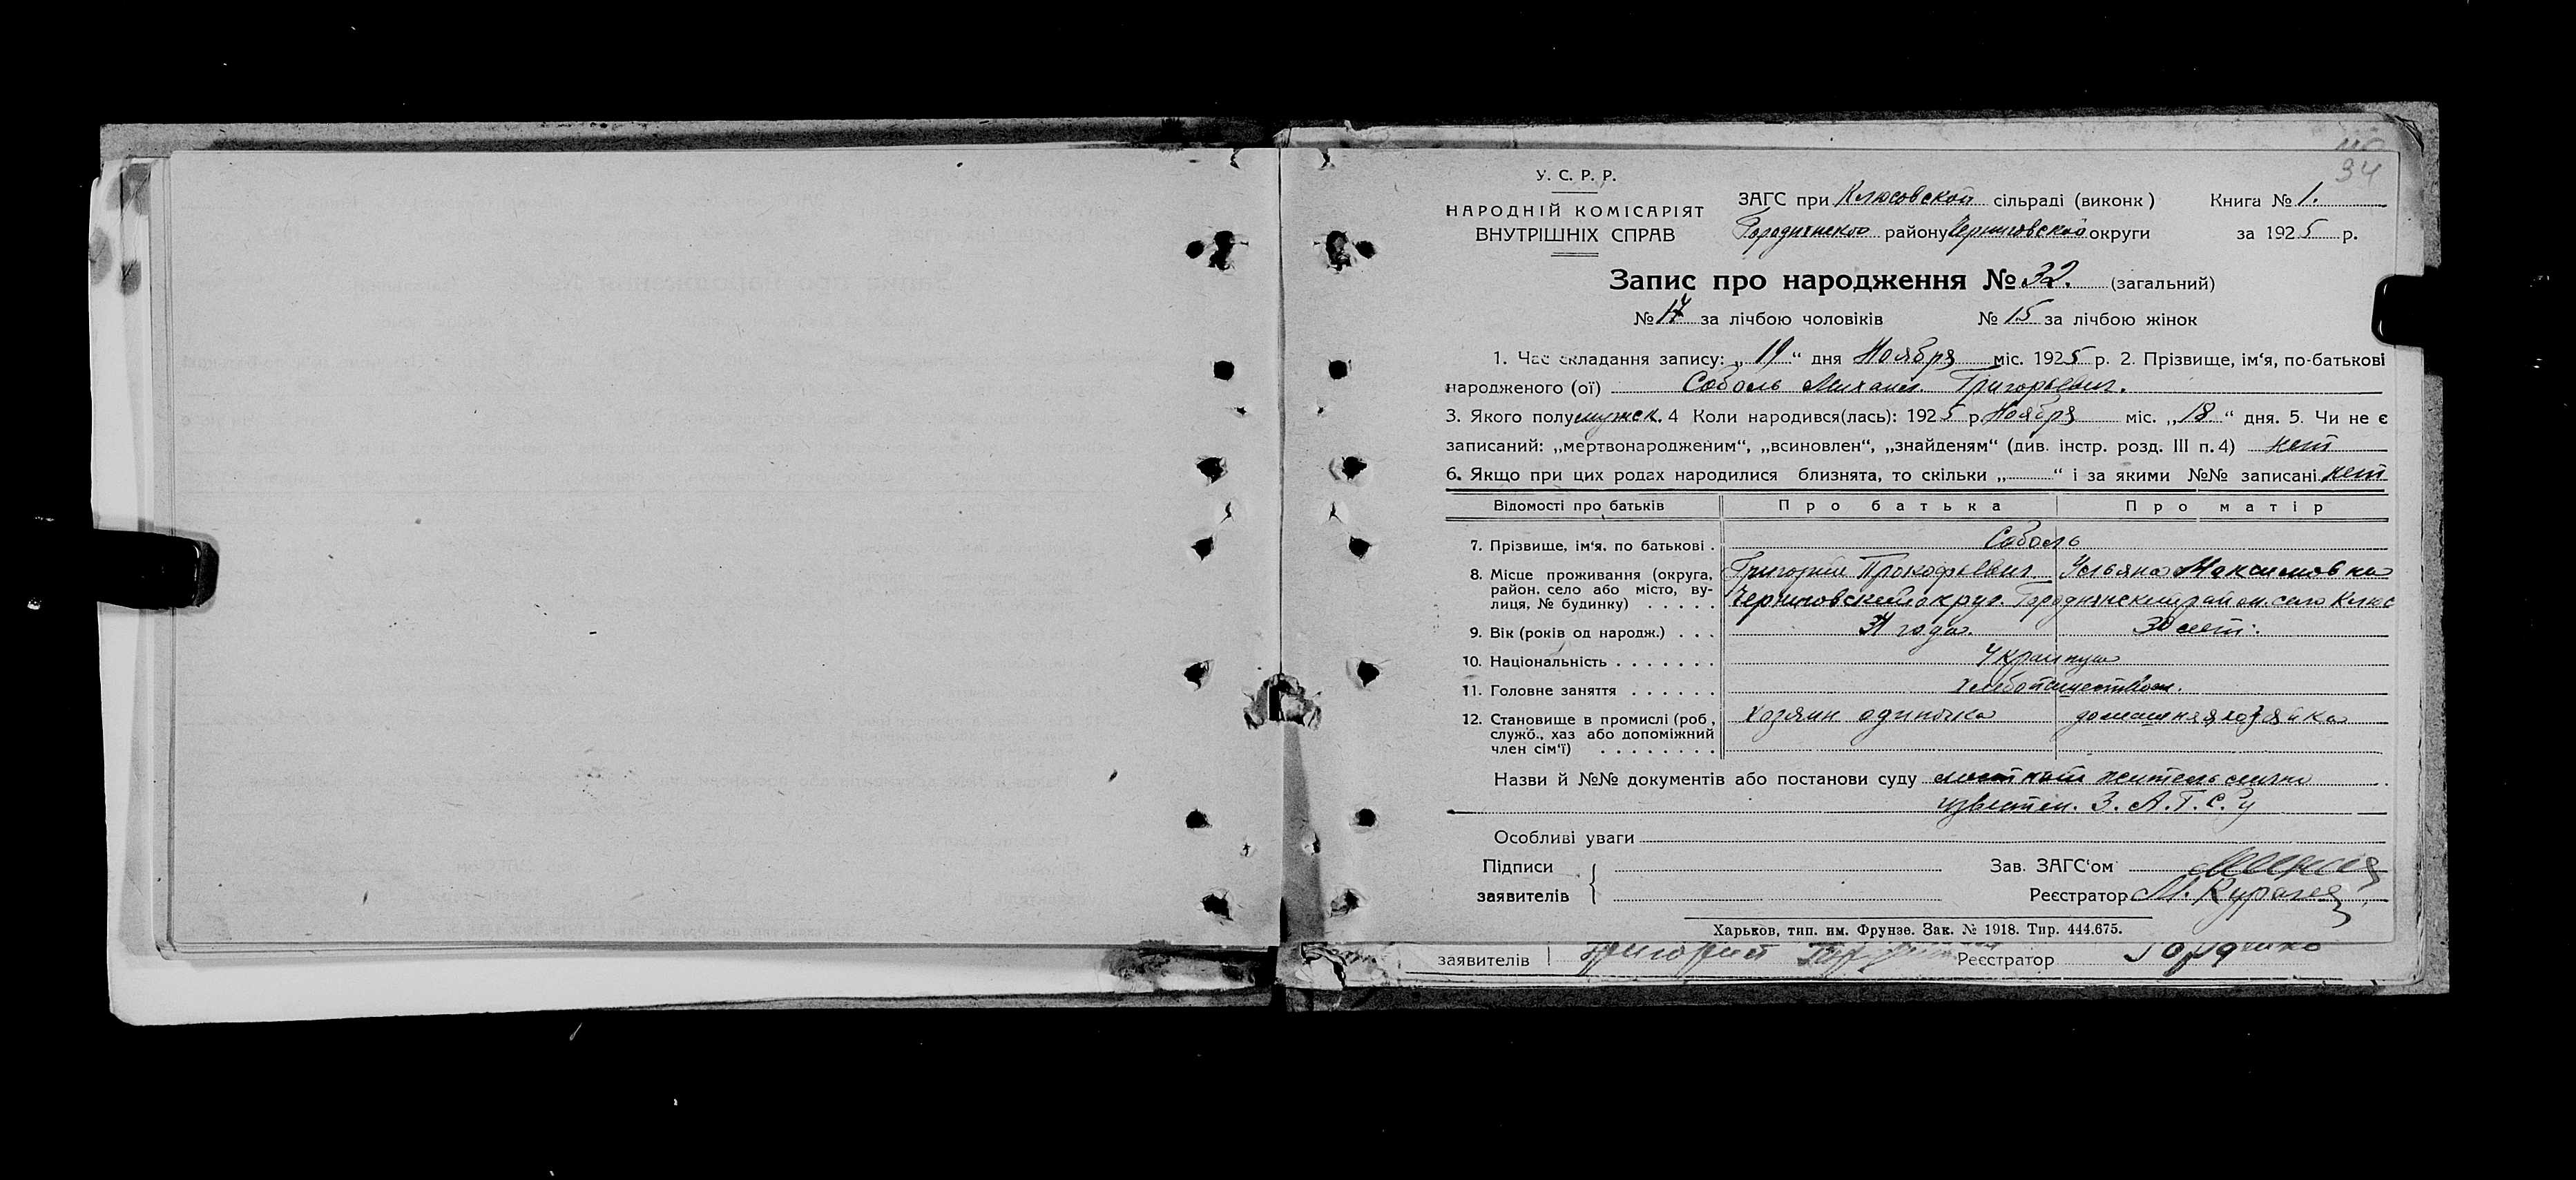 34
У. С. Р. Р.
НАРОДНІЙ КОМІСАРІЯТ
ВНУТРІШНІХ СПРАВ
ЗАГС при Клюсовской сільраді (виконк) Книга № 1.
Городнянского району Черниговской округи за 1925 р.
Запис про народження № 32. (загальний)
№ 17 за лічбою чоловіків № 15 за лічбою жінок
1. Час складання запису: „19“ дня Ноября міс. 1925 р. 2. Прізвище, ім‘я, по-батькові
народженого (ої) Соболь Михаил Григорьевич.
3. Якого полу мужск. 4 Коли народився(лась): 1925 р. Ноября міс. „18“ дня. 5. Чи не є
записаний: „мертвонародженим“, „всиновлен“, „знайденям“ (див. інстр. розд. III п. 4) нет
6. Якщо при цих родах народилися близнята, то скільки „ “ і за якими №№ записані нет
Відомості про батьків Про батька Про матір
7. Прізвище, ім‘я, по батькові . Соболь
8. Місце проживання (округа, Григорий Прокофьевич Ульяна Максимовна
район, село або місто, ву-
лиця, № будинку) . . . . . Черниговский округ. Городнянский район. село Клюс
9. Вік (років од народж.) . . . 31 года. 30 лет.
10. Національність . . . . . . .
11. Головне заняття . . . . . . хлебопашеством.
12. Становище в промислі (роб, хозяин одиночка домашняя хозяйка
служб., хаз або допоміжний
член сім‘ї) . . . . . . . .
Назви й №№ документів або постанови суду житель лично
известен. З. А. Г. С. у
Особливі уваги
Підписи Зав. ЗАГС‘ом
заявителів Реєстратор М.
Харьков, тип. им. Фрунзе. Зак. № 1918. Тир. 444.675.
заявителів Григорий Реєстратор